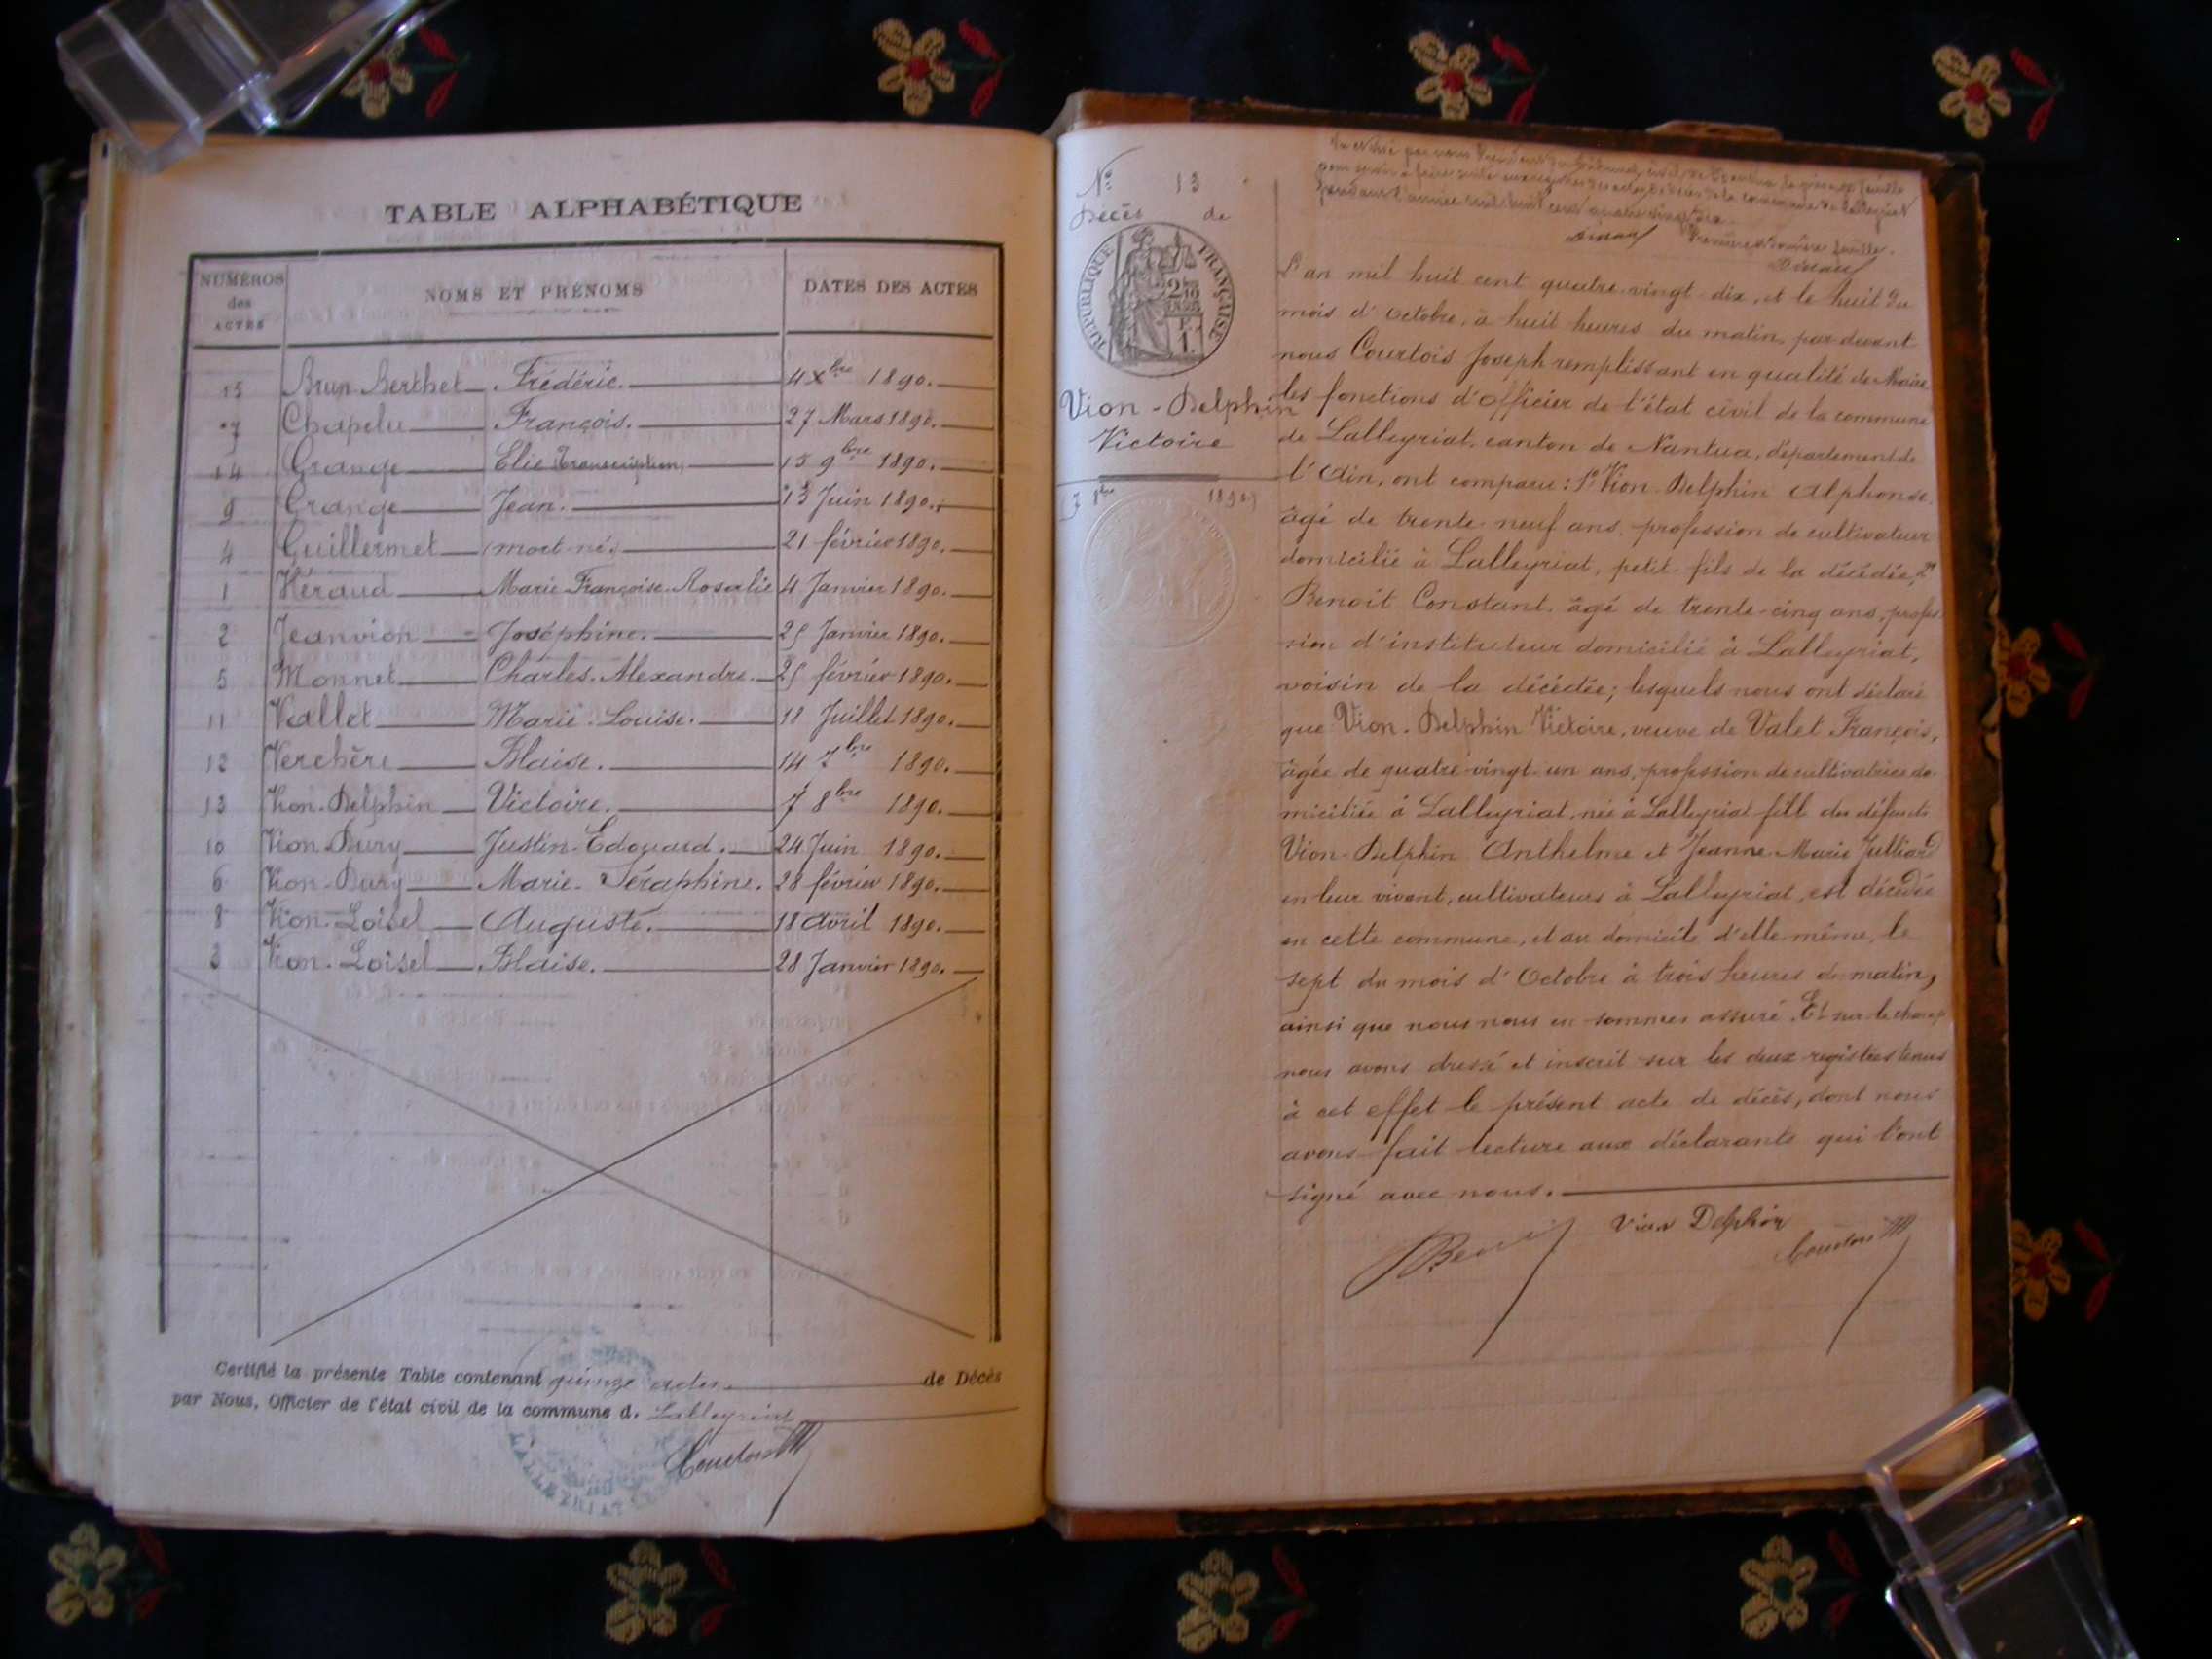 TABLE ALPHABÉTIQUE
NUMÉROS des ACTES NOMS ET PRÉNOMS DATES DES ACTES
15 Brun Berthet Frédéric. 4 Xbre 1890.
7 Chapelu François. 27 Mars 1890.
14 Grange Elie (Transcription) 15 9bre 1890.
9 Grange Jean. 13 Juin 1890.
4 Guillermet (mort-né) 21 février 1890.
1 Héraud Marie Françoise Rosalie 4 Janvier 1890.
2 Jeanvion Joséphine. 25 Janvier 1890.
5 Monnet Charles-Alexandre. 25 février 1890.
11 Vallet Marie-Louise. 18 Juillet 1890.
12 Verchère Blaise. 14 7bre 1890.
13 Vion-Delphin Victoire. 7 8bre 1890.
10 Vion-Dury Justin-Edouard. 24 Juin 1890.
6 Vion-Dury Marie-Séraphine. 28 février 1890.
8 Vion-Loisel Auguste. 18 Avril 1890.
3 Vion-Loisel Blaise. 28 Janvier 1890.
Certifié la présente Table contenant quinze actes de Décès
par Nous, Officier de l'état civil de la commune d. Lalleyriat
Courtois
LALLEYRIAT
pour servir à faire suite aux registres des actes de décès de la commune de Lalleyriat
pendant l'année mil huit cent quatre vingt dix.
Première & dernière feuille.
No 13
Décès de
RÉPUBLIQUE FRANÇAISE
Vion-Delphin
Victoire
1890
L'an mil huit cent quatre-vingt-dix, et le huit du
mois d'octobre, à huit heures du matin, par devant
nous Courtois Joseph remplissant en qualité de Maire
les fonctions d'officier de l'état civil de la commune
de Lalleyriat, canton de Nantua, département de
l'Ain, ont comparu: 1° Vion-Delphin Alphonse
âgé de trente-neuf ans, profession de cultivateur
domicilié à Lalleyriat, petit-fils de la décédée, 2°
Benoit Constant, âgé de trente-cinq ans, profes-
sion d'instituteur domicilié à Lalleyriat,
voisin de la décédée; lesquels nous ont déclaré
que Vion-Delphin Victoire, veuve de Valet François,
âgée de quatre-vingt-un ans, profession de cultivatrice do-
miciliée à Lalleyriat, née à Lalleyriat fille des défunts
Vion-Delphin Anthelme et Jeanne-Marie Julliard
en leur vivant, cultivateurs à Lalleyriat, est décédée
en cette commune, et au domicile d'elle-même, le
sept du mois d'Octobre à trois heures du matin,
ainsi que nous nous en sommes assuré. Et sur le champ
nous avons dressé et inscrit sur les deux registres tenus
à cet effet le présent acte de décès, dont nous
avons fait lecture aux déclarants qui l'ont
signé avec nous.
Vion Delphin
Courtois